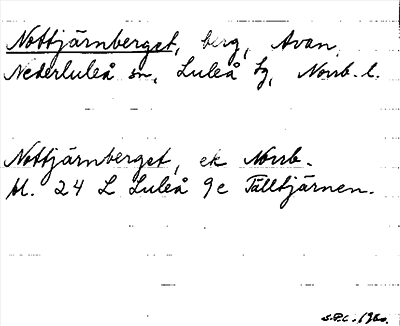 Nottjärnberget, berg, Avan,
Nederluleå sn, Luleå tg, Norrb. l.
Nottjärnberget, ek Norrb.
bl. 24 L Luleå 9e Tälltjärnen.